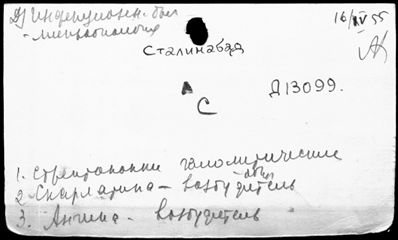 Д) Инфекционн. бол
- микробиология
16/XII 55
Сталинабад
А
С
Д13099.
1. Стрептококки гемолитические
2. Скарлатина - возбудитель
3. Ангина - возбудитель